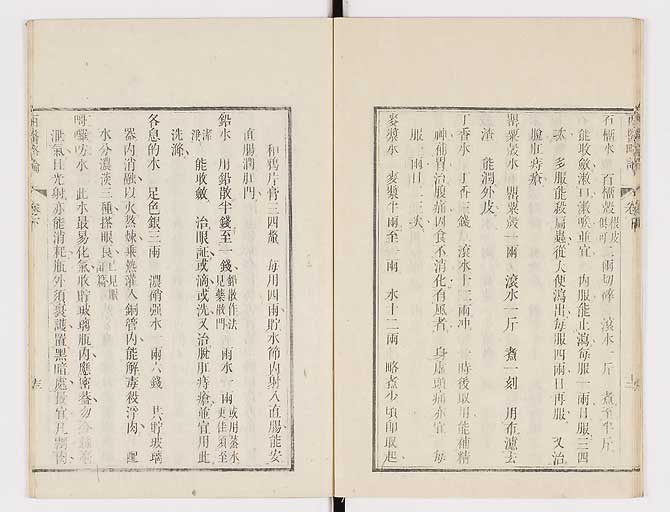 石榴水 石榴殼根皮俱可二兩切碎 滾水一斤 煮至半斤
能收斂漱口漱喉並宜 內服能止瀉每服一兩日服三四
次 多服能殺扁蟲從大便瀉出每服四兩日再服 又治
脫肛痔瘡
罌粟殼水 罌粟殼一兩 滾水一斤 煮一刻 用布濾去
渣 能潤外皮
丁香水 丁香三錢 滾水十二兩冲 一時後取用能補精
神補胃治腹痛因食不消化有風者 身虛頭痛亦宜 每
服二兩日二三次
麥漿水 麥漿半兩至一兩 水十二兩 略煮少頃即取起
和鴉片膏三四厘 每用四兩貯水節內射入直腸能安
直腸潤肛門
鉛水 用鉛散半錢至一錢鉛散作法見藥散門 雨水一兩或用蒸水更佳須至
潔淨 能收斂 治眼証或滴或洗又治脫肛痔瘡並宜用此
洗滌
各息的水 足色銀三兩 濃硝强水一兩六錢 共貯玻璃
器內消融以火蒸煉乘熱灌入銅管內能解毒殺浮肉
水分濃淡三種搽眼良已見眼証篇
此水最易化氣收貯玻璃瓶內應密蓋勿
洩氣且光射亦能消耗瓶外須裹護置黑暗處最宜凡
西醫略論
西醫略論